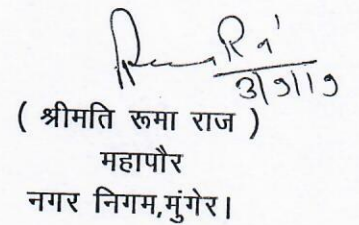 3/9/19
( श्रीमति रूमा राज )
महापौर
नगर निगम,मुंगेर।